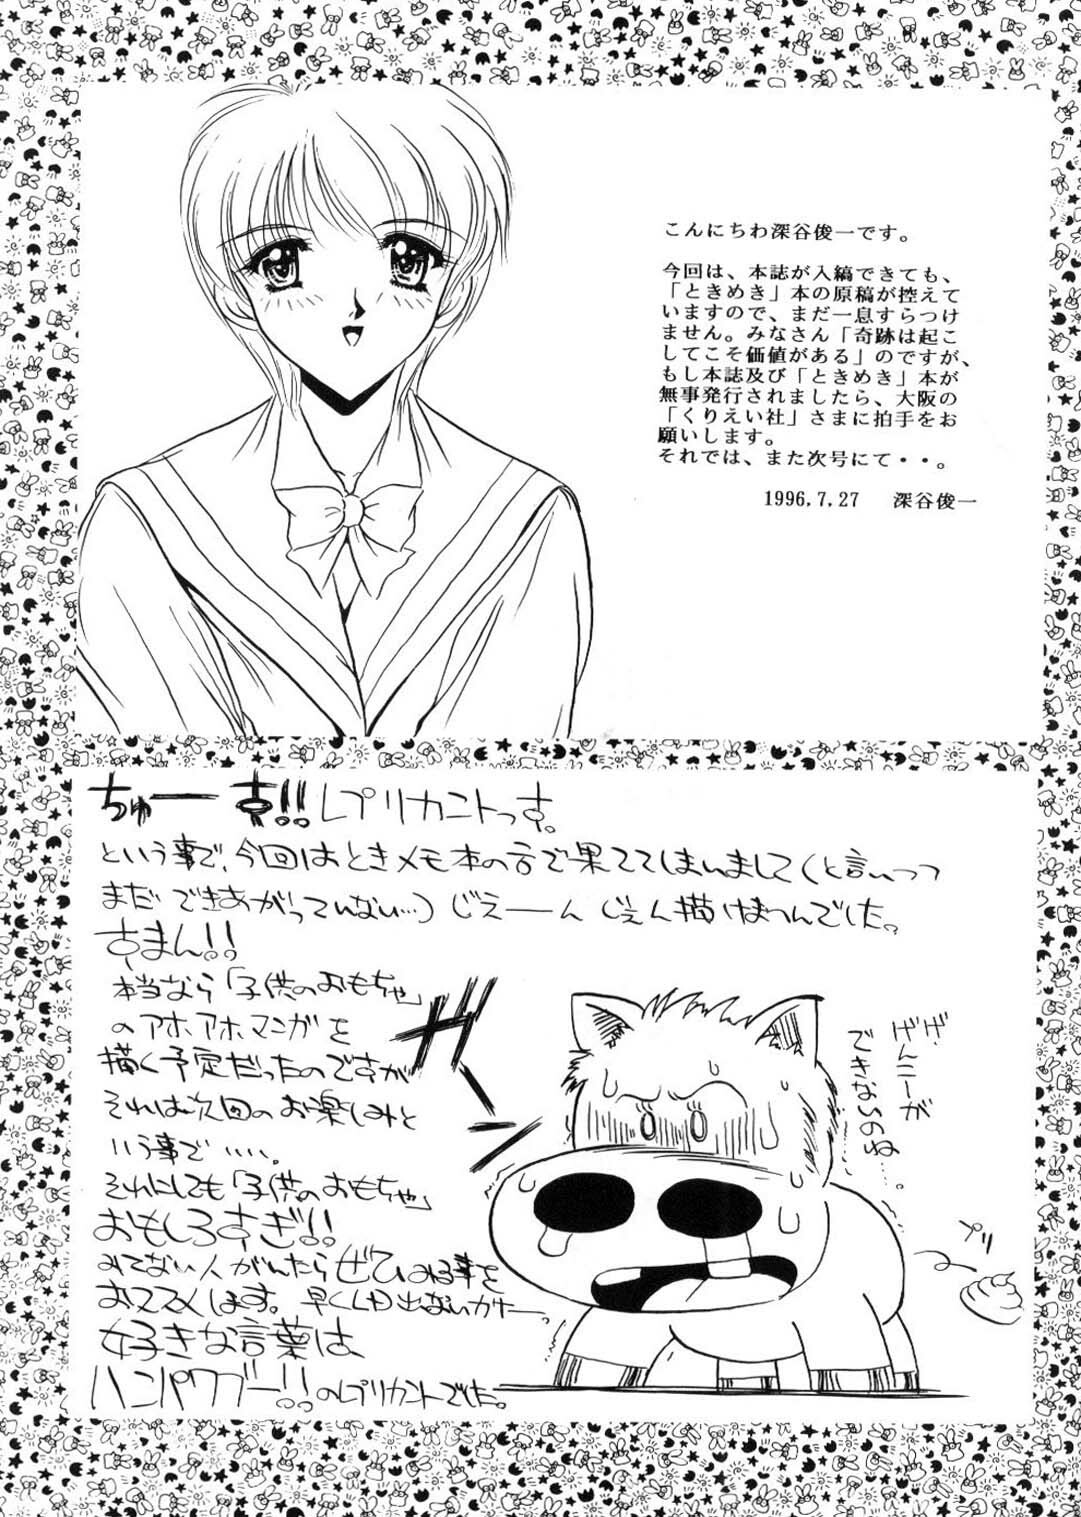 こんにちわ深谷俊一です。
今回は、本誌が入縞できても、
「ときめき」本の原稿が控えて
いますので、まだ一息すらつけ
ません。みなさん「奇跡は起こ
してこそ価値がある」のですが、
もし本誌及び「ときめき」本が
無事発行されましたら、大阪の
「くりえい社」さまに拍手をお
願いします。
それでは、また次号にて・・。
1996,7,27 深谷俊一
ちゅーす!!レプリカントっす。
という事で、今回はときメモ本の方で果ててしまいまして(と言いつつ
まだできあがっていない…)じえーんじえん描けませんでした。
すまん!!
本当なら「子供のおもちゃ」
のアホアホマンガを
描く予定だったのですが
それは次回のお楽しみと
いう事で・・・・。
それにしても「子供のおもちゃ」
おもしろすぎ!!
みてない人がいたらぜひみる事を
おススメします。早くLD出ないかなー。
好きな言葉は
ハンパワブー!!のレプリカントでした。
ガーン
げ、げんこーが
できないのね…
プリ